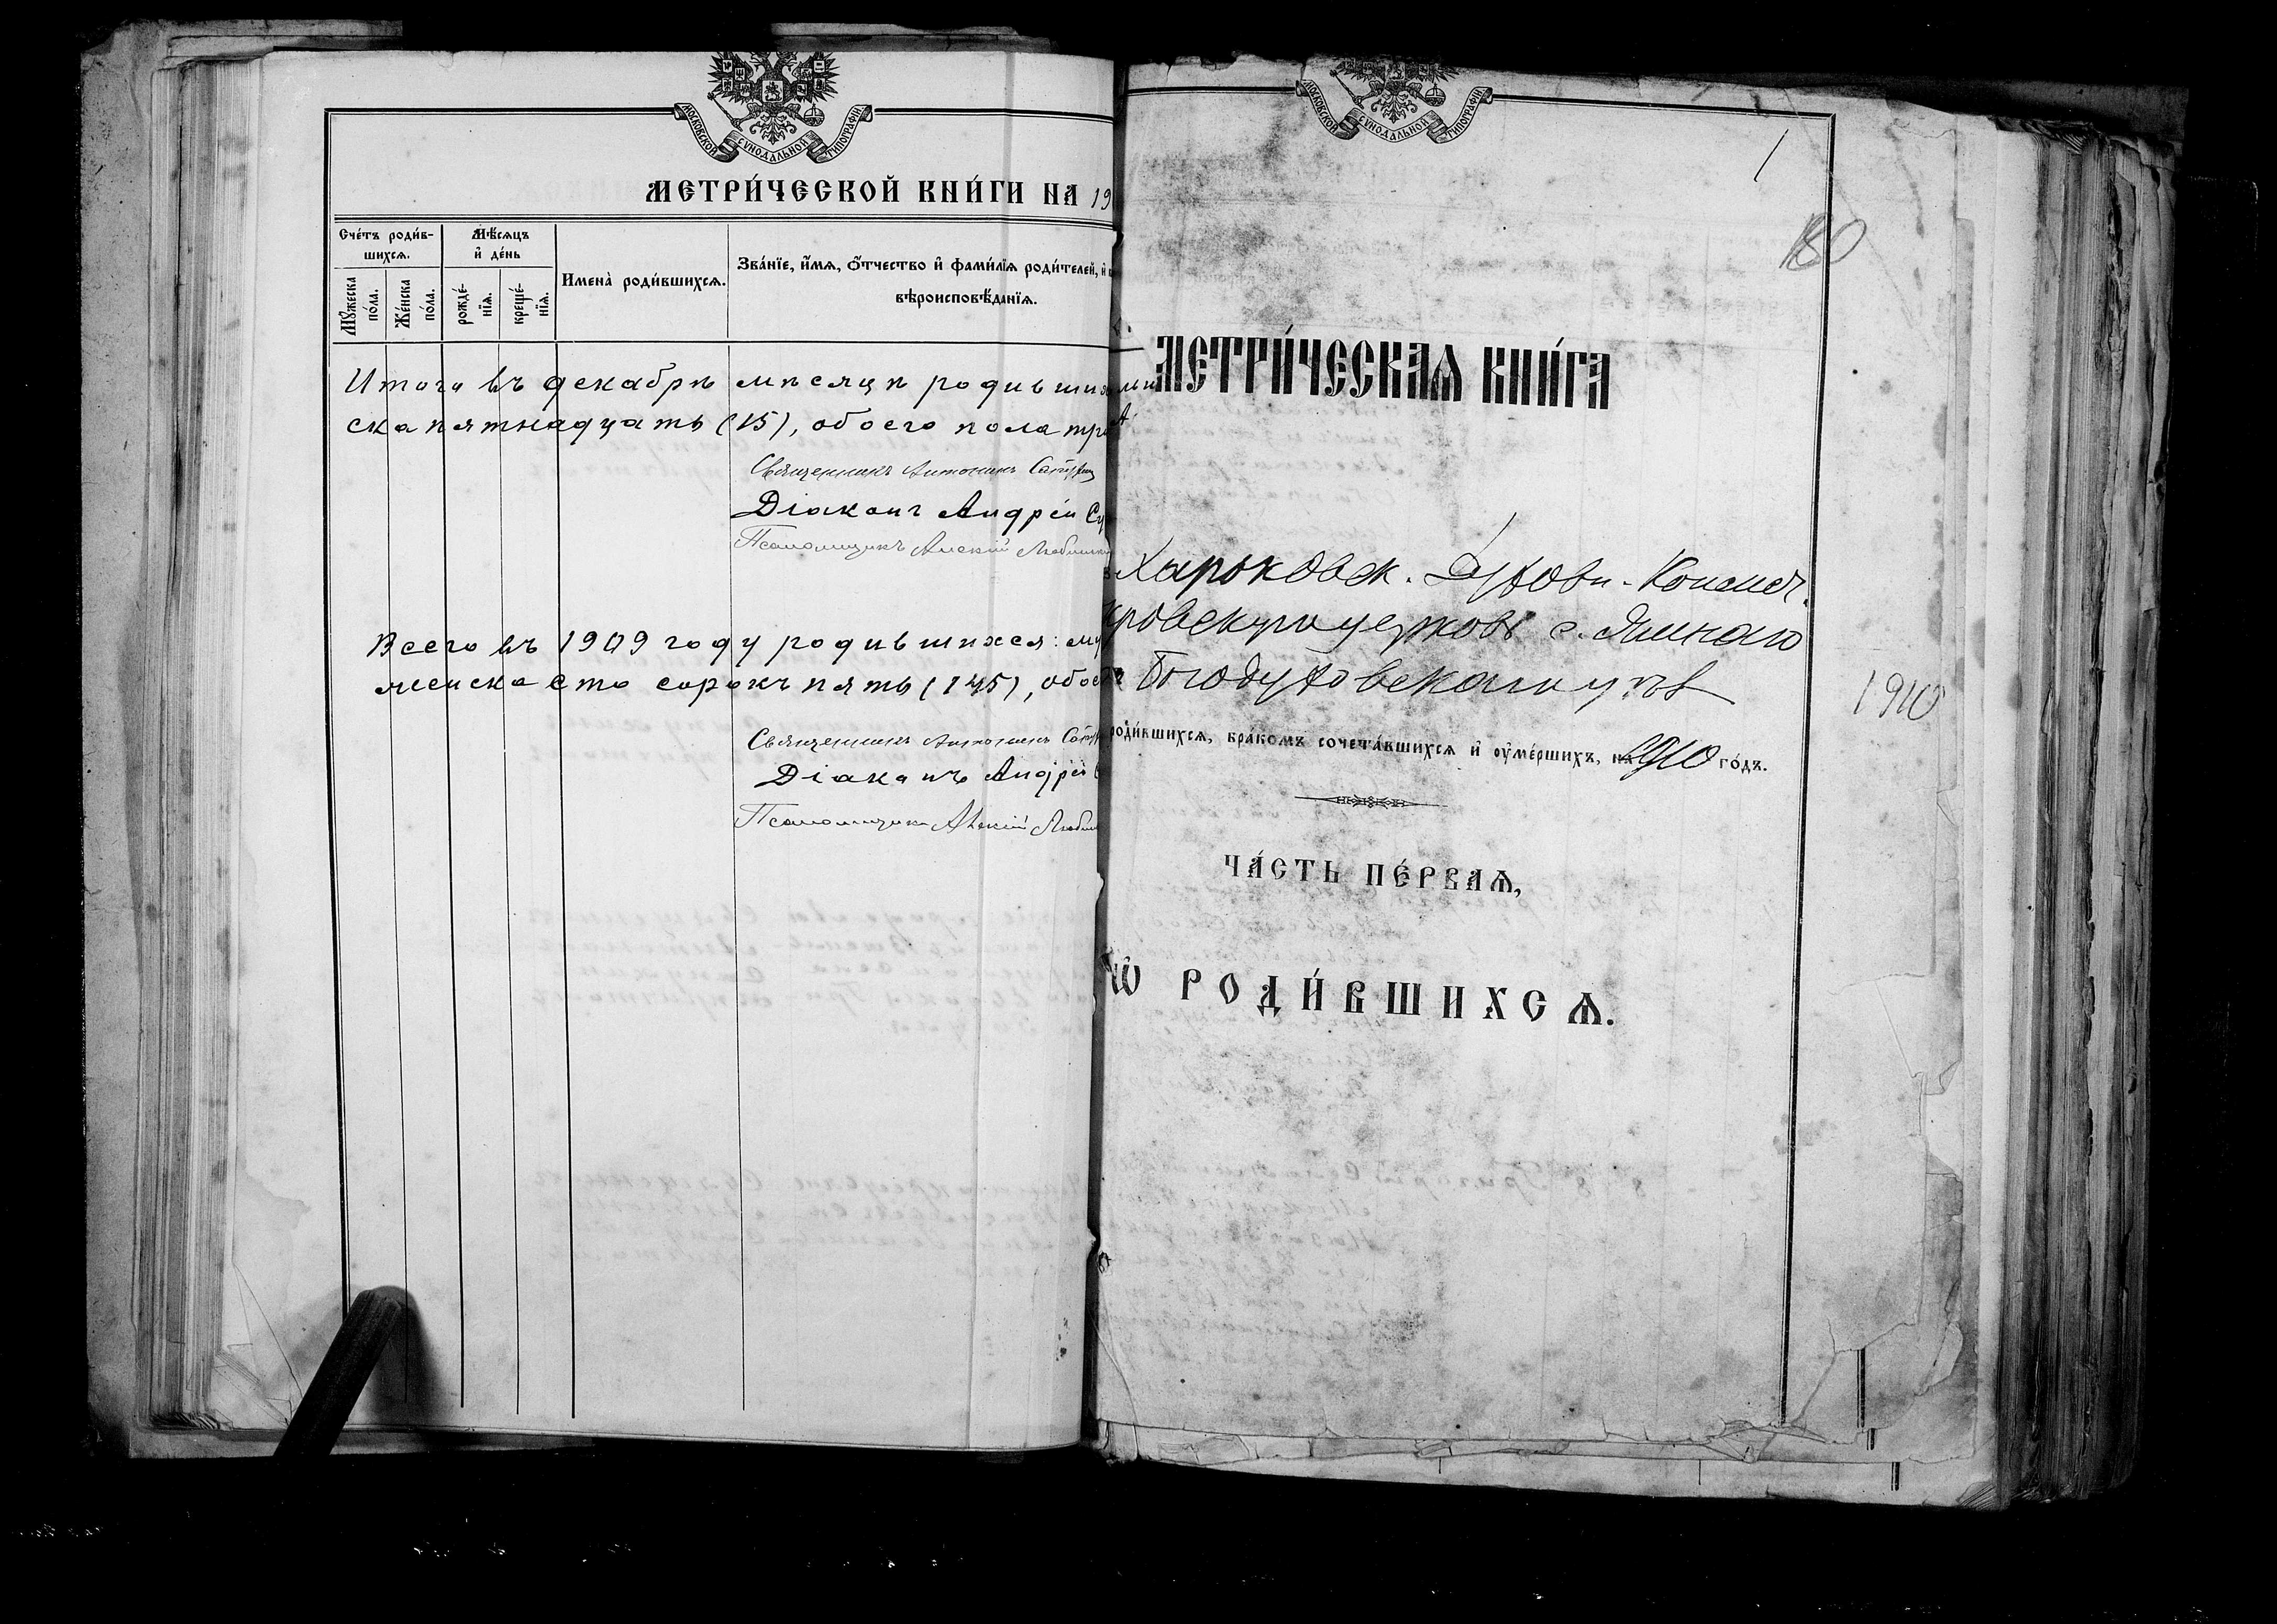 МОСКОВСКОЙ СѴНОДАЛЬНОЙ ТИПОГРАФІИ
МЕТРИ́ЧЕСКОЙ КНИ́ГИ НА 19
Сче́тъ роди́в-
шихсѧ.
Мꙋ́жеска по́ла.
Же́нска по́ла.
Мѣ́сѧцъ
и҆ де́нь
рожде́-
нїѧ.
креще́-
нїѧ.
Имена̀ роди́вшихсѧ.
Зва́нїе, и҆́мѧ, ѻ҆́тчество и҆ фами́лїѧ роди́телей, и҆
вѣроисповѣ́данїѧ.
Итого въ декабрѣ мѣсяцѣ родивших
ска пятнадцать (15), обоего пола тр
Священникъ Антонинъ
Діаконъ Андрей
Псаломщикъ Алексій
Всего въ 1909 году родившихся: му
женска сто сорокъ пять (145), обоег
Священникъ Антонинъ
Діаконъ Андрей
Псаломщикъ Алексій
МОСКОВСКОЙ СѴНОДАЛЬНОЙ ТИПОГРАФІИ
1
180
МЕТРИ́ЧЕСКАѦ КНИ́ГА
Харьковск. Духовн. Консист.
кровскую церковь с. Ямнаго
Богодуховскаго у.
1910
роди́вшихсѧ, бра́комъ сочета́вшихсѧ и҆ ᲂу҆ме́ршихъ, на 1910 го́дъ.
ЧА́СТЬ ПЕ́РВАѦ,
Ѡ҆ РОДИ́ВШИХСѦ.